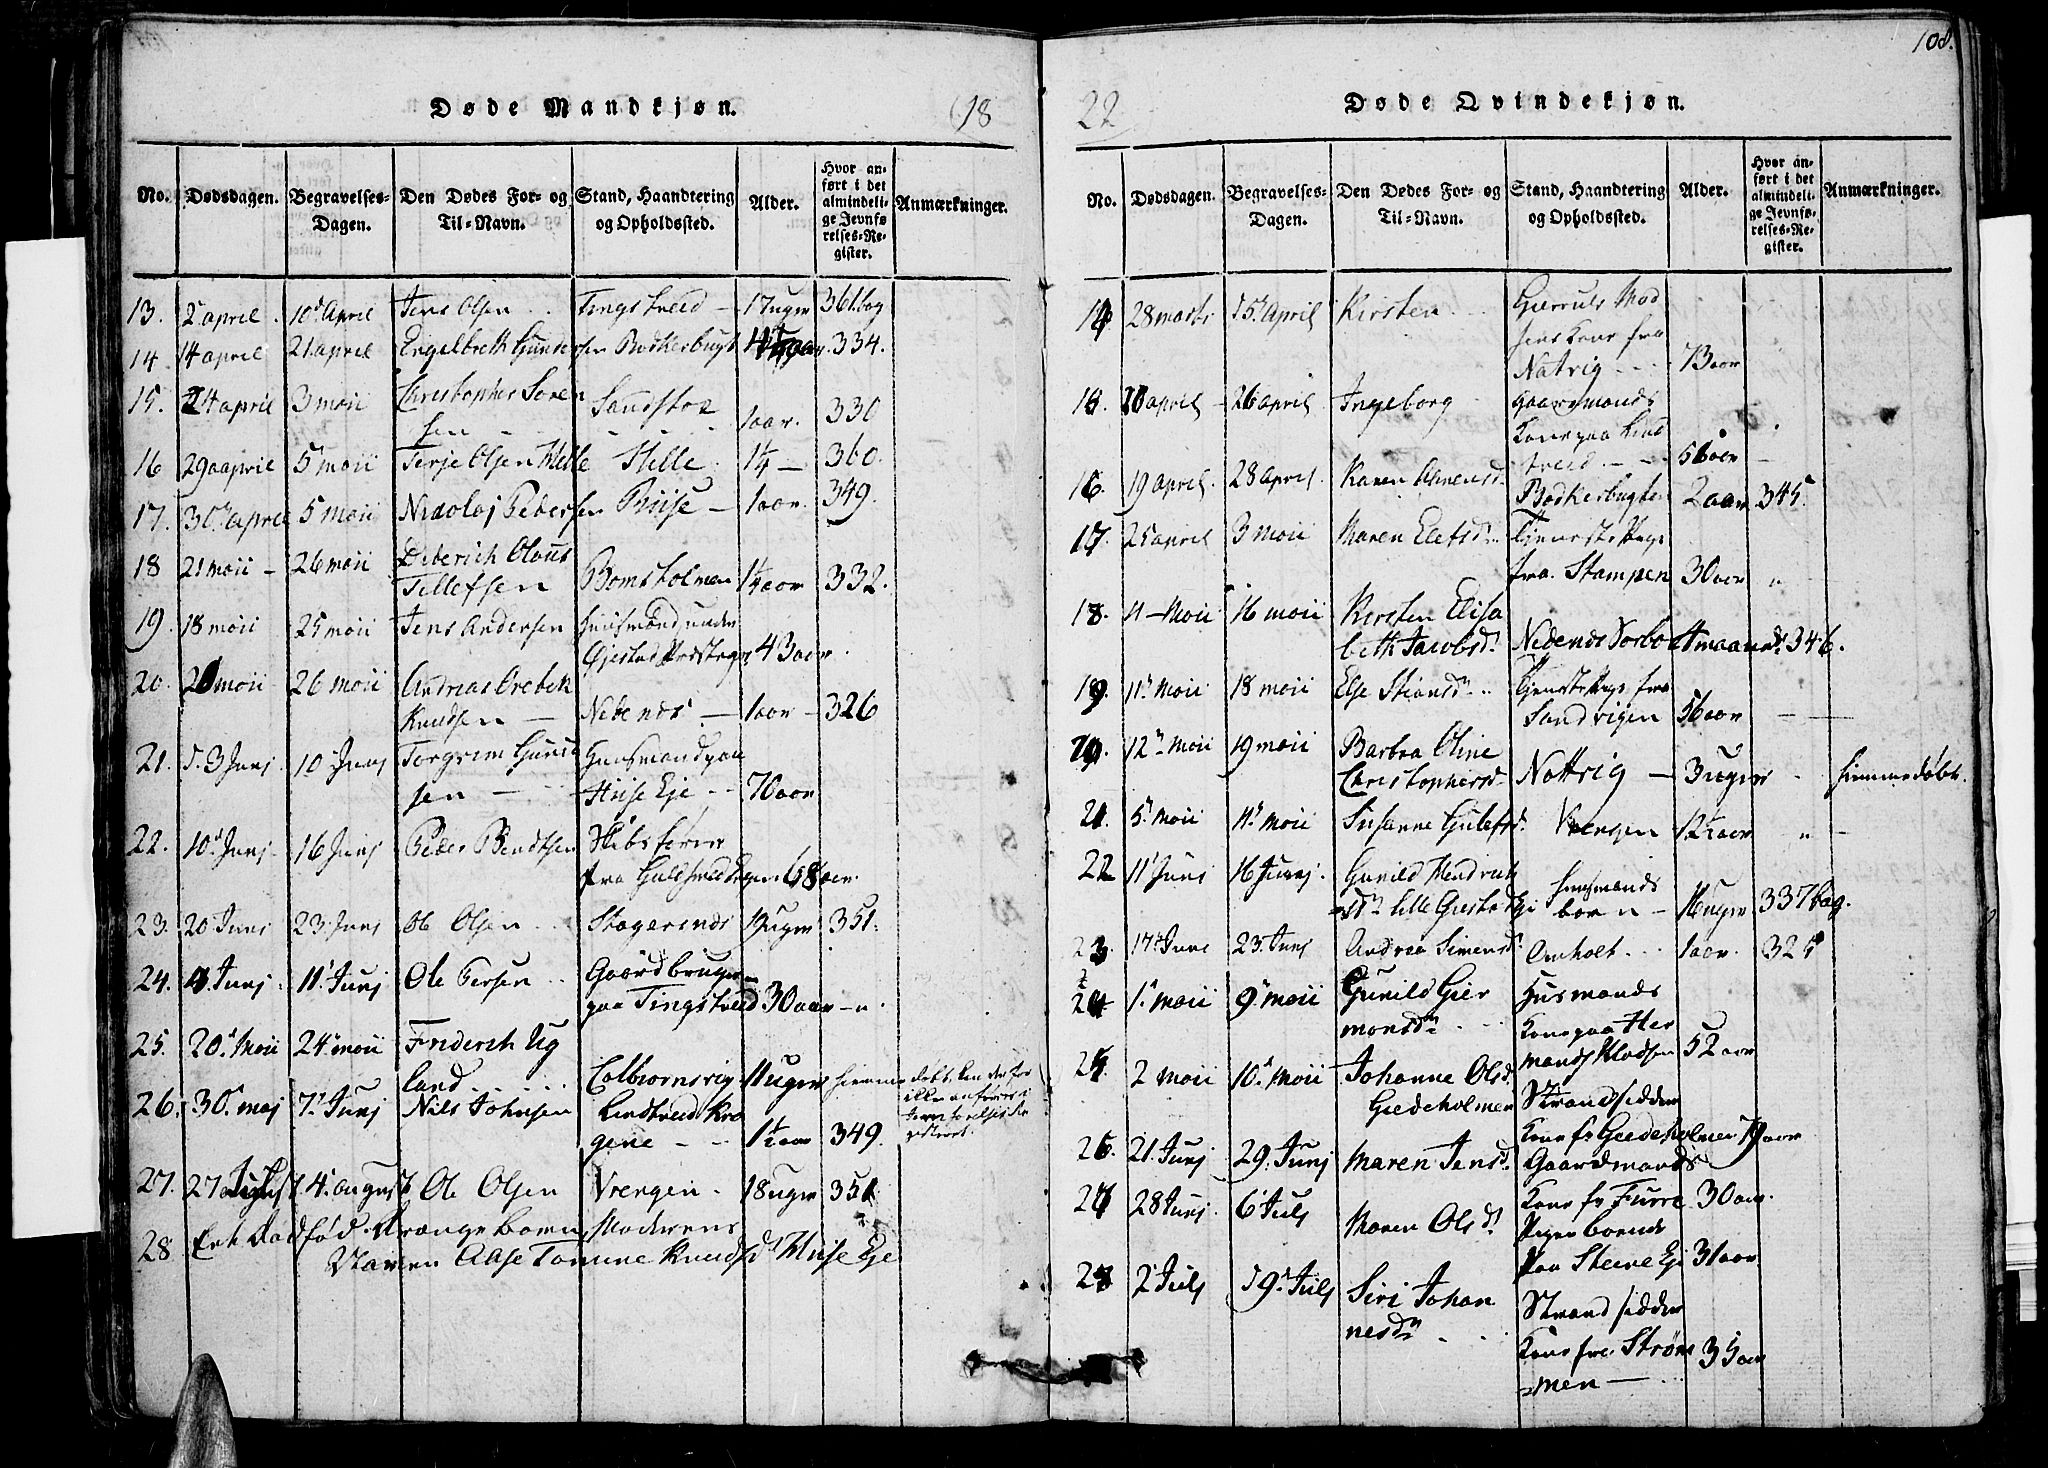 108.
Døde Mandkjøn.
18
No.
Dødsdagen.
Begravelses-
Dagen.
Den Dødes For- og
Til-Navn.
Stand, Haandtering
og Opholdssted.
Alder.
Hvor an-
ført i det
almindeli-
ge Jevnfø-
relses-Re-
gister.
Anmærkninger.
13. 2 april. 10 April Jens Olsen Tingstveed – 17 uger 361. bag
14 14 april 21. april Engelbreth Gundersen Bodkerbugt 334.
15. 24 april 3 moii Christopher Soren
sen Sandstoe 1 aar. 330
16 29 april 5 moii Terje Olsen Hille Hille 1¼ – 360.
17. 30 april 5 moii Nicolaj Pedersen Biise – 1 aar. 349.
18 21 moii – 26 moii Diderich Olaus
Tellefsen Bomsholmen 1¼ aar 332.
19. 18 moii 25 moii Jens Andersen Huusmand under
Øjestad Præstegr 43 aar.
20. 20 moii 26 moii Andreas Orebek
Knudsen – Nedenes – 1 aar – 326
21. 3 Junj. 10 Junj Torgrim Gund
sen – Huusmand paa
Hiise Eje – 70 aar
22. 10 Junj – 16 Junj Peder Bendtsen Skibsfører
fra 68 aar.
23. 20 Junj 23. Junj Ole Olsen Stagerends 19 uger 351.
24. 4 Junj. 11 Junj Ole Tersen Gaardbruger
paa Tingstveed 30 aar – "
25. 20 Moii 24 moii Friderich Ug
land Colbiornsvig 11 uger hiemmedøbt,
26. 30. maj 7 Junj Nils Johnsen Lindtveed Kro
gene – 1½ aar 349.
27. 27 4. august Ole Olsen Vrengen – 18 uger 351
28 Eet Dødfød Drængebarn, Moderens
Navn Aase Tomine Knudsd. Hiise Eje
22
Døde Qvindekjøn.
No.
Dødsdagen.
Begravelses-
Dagen.
Den Dødes For- og
Til-Navn.
Stand, Haandtering
og Opholdssted.
Alder.
Hvor an-
ført i det
almindeli-
ge Jevnfø-
relses-Re-
gister.
Anmærkninger.
14 28 marts 15 April Kirsten Mad
sens Kone fra
Natvig 73 aar
15. 20 april – 26 april Ingeborg Gaardmands
Kone paa Lind
tveed – 56 aar –
16. 19 april. 28 april. Karen Bodkerbugten 2 aar 345.
17. 25 april 3 moii Maren Elefsd. Tjeneste Pige
fra Stampen 30 aar "
18. 11 – Moii 16 moii Kirsten Elisa
beth Jacobsd. Nedenes 4 maaned 346.
19. 11 Moii 18 moii Else Stiansd. Tjeneste Pige fra
Sandvigen 56 aar –
20. 12 Moii 19 moii Barbra Oline
Christophersd. Nattvig – 3 uger – hiemmedøbt.
21. 5 moii 11 moii Susanne Gulefsd. Vrengen 12½ aar " –
22 11 Junj 16 Junj. Gunild Hendrik
sd. lille Giestad Eje Huusmands
barn – 16 uger 337 bag.
23 17 Juni 23. Junj Andrea Simensd. Omholt 1 aar. 325
24 1 Moii 9 moii Gunild Gier
monsd. Husmands
Kone paa Her
mands Klodsen 52 aar
25. 2 moii 10 Moii Johanne Olsd.
Giedeholmen Strandsidder
Kone fr Giedeholmen 79 aar
26. 21. Junj 29. Junj Maren Jensd. Gaardmands
Kone fr Furre 30 aar.
27 28 Junj. 6 Julj Maren Olsd.
Paa Steene Eje 31 aar
28 2 Julj 19 Julj Siri Johan
nesd. Strandsidder
Kone fra Strøm
men – 35 aar